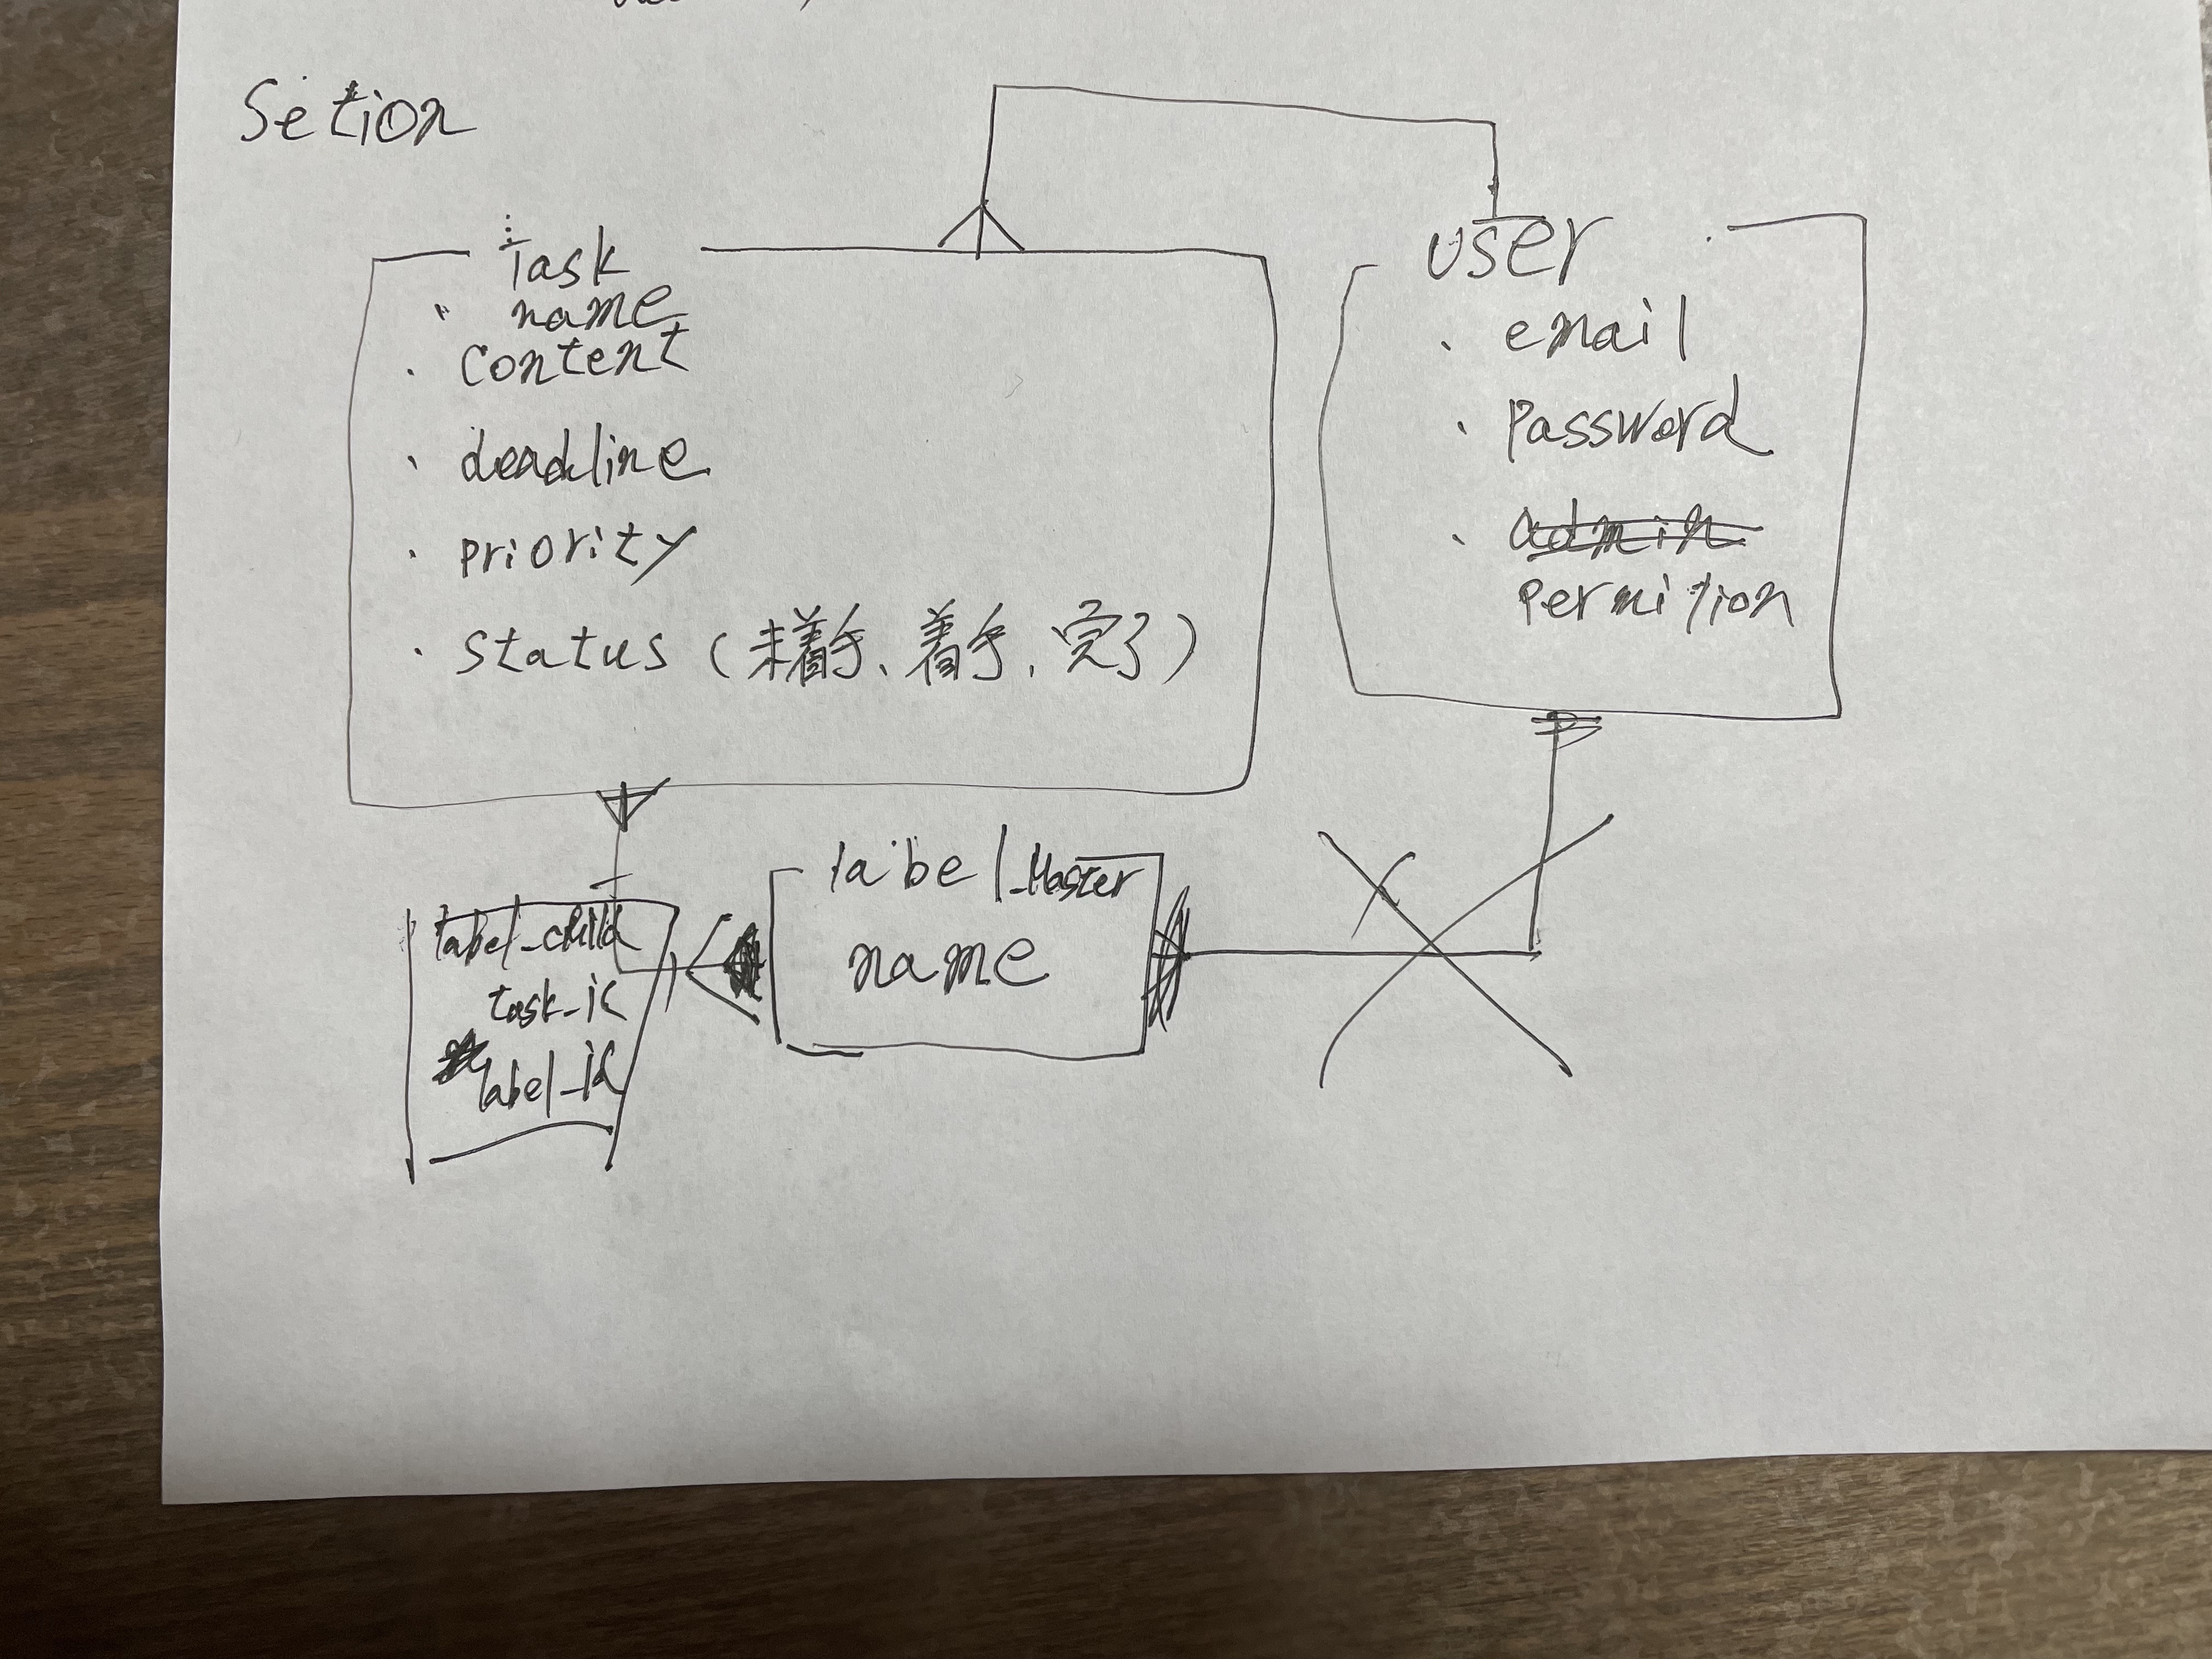 Setion
Task
・ name
・ content
・ deadline
・ priority
・ status (未着手、着手、完了)
user
・ email
・ Password
・ admin
permition
label_Master
name
label_child
task_id
label_id